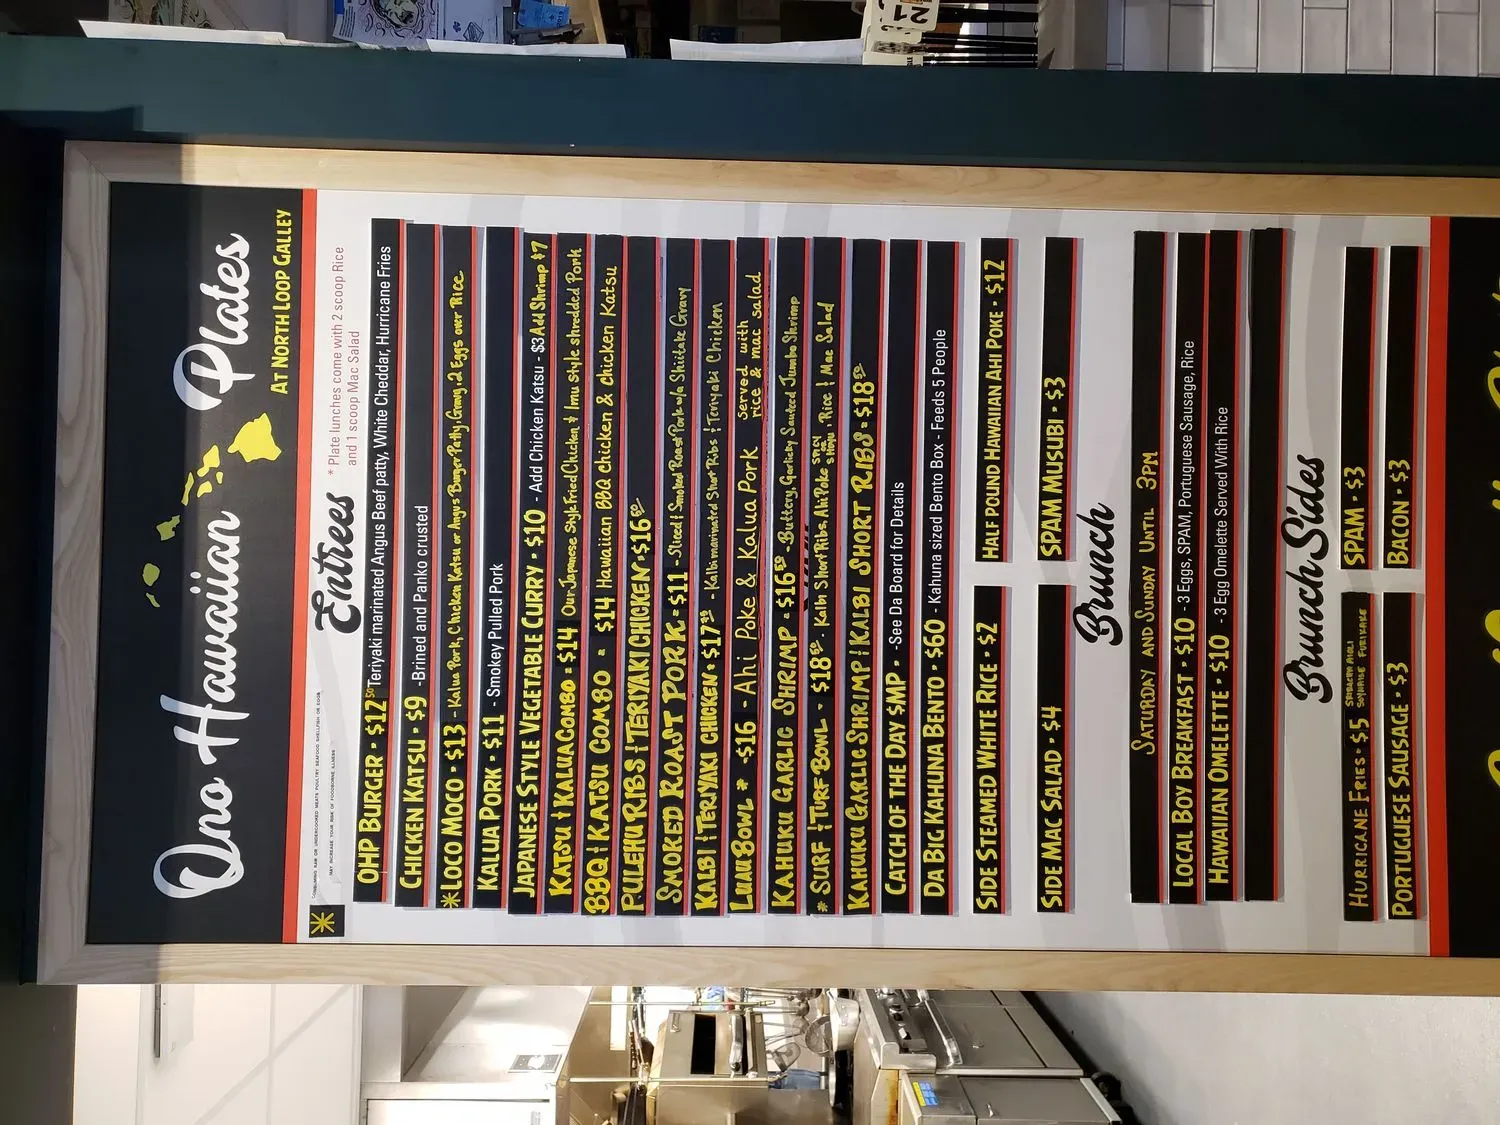 Ono Hawaiian Plates
AT NORTH LOOP GALLEY
Entrees
* Plate lunches come with 2 scoop Rice
and 1 scoop Mac Salad
CONSUMING RAW OR UNDERCOOKED MEATS POULTRY SEAFOOD SHELLFISH OR EGGS
MAY INCREASE YOUR RISK OF FOODBORNE ILLNESS
OHP BURGER • $12 50 Teriyaki marinated Angus Beef patty, White Cheddar, Hurricane Fries
CHICKEN KATSU • $9 -Brined and Panko crusted
* LOCO MOCO • $13 - Kalua Pork, Chicken Katsu or Angus Burger Patty, Gravy, 2 Eggs over Rice
KALUA PORK • $11 - Smokey Pulled Pork
JAPANESE STYLE VEGETABLE CURRY • $10 - Add Chicken Katsu - $3 Add Shrimp $7
KATSU + KALUA COMBO • $14 Our Japanese Style Fried Chicken + Imu style shredded Pork
BBQ + KATSU COMBO • $14 Hawaiian BBQ chicken & chicken Katsu
PULEHU RIBS + TERIYAKI CHICKEN • $16 50
SMOKED ROAST PORK • $11 -Sliced + Smoked Roast Pork w/a Shiitake Gravy
KALBI + TERIYAKI CHICKEN • $17 - Kalbi marinated Short Ribs + Teriyaki Chicken
LUAU BOWL * -$16 - Ahi Poke & Kalua Pork served with
rice & mac salad
KAHUKU GARLIC SHRIMP • $16 50 -Buttery, Garlicky Sauteed Jumbo Shrimp
* SURF + TURF BOWL - $18 50 - Kalbi Short Ribs, Ahi Poke SPICY SHOYU, Rice + Mac Salad
KAHUKU GARLIC SHRIMP + KALBI SHORT RIBS • $18 50
CATCH OF THE DAY $MP • -See Da Board for Details
DA BIG KAHUNA BENTO • $60 - Kahuna sized Bento Box - Feeds 5 People
SIDE STEAMED WHITE RICE • $2
HALF POUND HAWAIIAN AHI POKE • $12
SIDE MAC SALAD • $4
SPAM MUSUBI • $3
Brunch
SATURDAY AND SUNDAY UNTIL 3PM
LOCAL BOY BREAKFAST • $10 - 3 Eggs, SPAM, Portuguese Sausage, Rice
HAWAIIAN OMELETTE • $10 - 3 Egg Omelette Served With Rice
Brunch Sides
HURRICANE FRIES • $5 SRIRACHA AIOLI
FURIKAKE
SPAM • $3
PORTUGUESE SAUSAGE • $3
BACON • $3
21